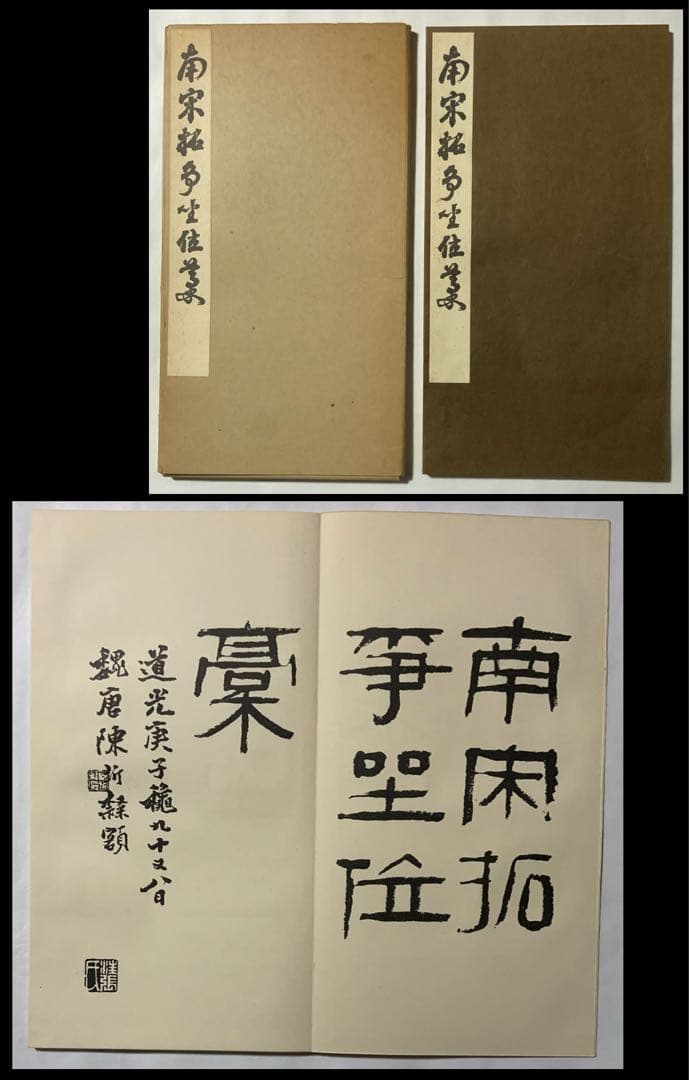 南宋拓争坐位藁
南宋拓争坐位藁
南宋拓
爭坐位
稾
道光庚子穐九十又八日
魏唐陳 隸額